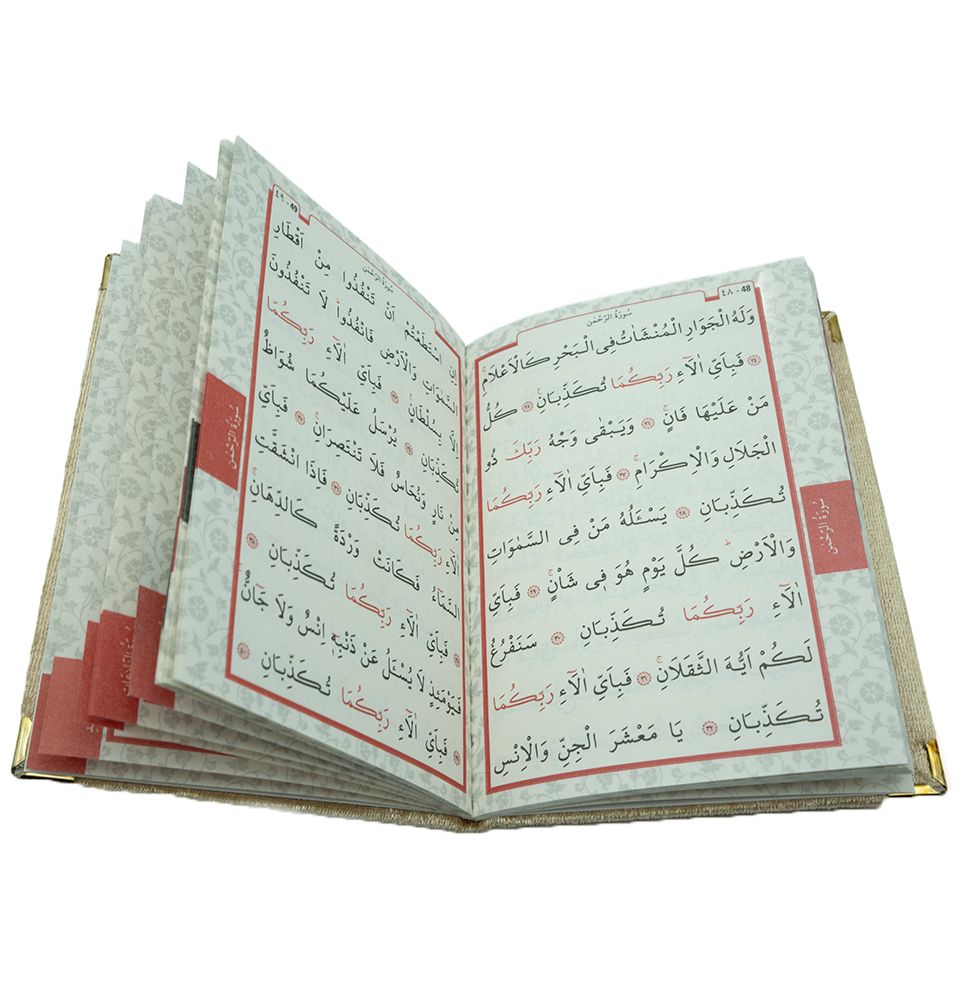 ٤٨ - 48
سُورَةُ الرَّحْمٰنِ
وَلَهُ الْجَوَارِ الْمُنْشَاٰتُ فِى الْبَحْرِ كَالْاَعْلَامِۚ
﴿٢٤﴾ فَبِاَىِّ اٰلَٓاءِ رَبِّكُمَا تُكَذِّبَانِ۟ ﴿٢٥﴾ كُلُّ
مَنْ عَلَيْهَا فَانٍۚ ﴿٢٦﴾ وَيَبْقٰى وَجْهُ رَبِّكَ ذُو
الْجَلَالِ وَالْاِكْرَامِۚ ﴿٢٧﴾ فَبِاَىِّ اٰلَٓاءِ رَبِّكُمَا
تُكَذِّبَانِ ﴿٢٨﴾ يَسْـَٔلُهُ مَنْ فِى السَّمٰوَاتِ
وَالْاَرْضِۜ كُلَّ يَوْمٍ هُوَ فٖى شَأْنٍۚ ﴿٢٩﴾ فَبِاَىِّ
اٰلَٓاءِ رَبِّكُمَا تُكَذِّبَانِ ﴿٣٠﴾ سَنَفْرُغُ
لَكُمْ اَيُّهَ الثَّقَلَانِۚ ﴿٣١﴾ فَبِاَىِّ اٰلَٓاءِ رَبِّكُمَا
تُكَذِّبَانِ ﴿٣٢﴾ يَا مَعْشَرَ الْجِنِّ وَالْاِنْسِ
سُورَةُ الرَّحْمٰنِ
٤٩ - 49
سُورَةُ الرَّحْمٰنِ
اِنِ اسْتَطَعْتُمْ اَنْ تَنْفُذُوا مِنْ اَقْطَارِ
السَّمٰوَاتِ وَالْاَرْضِ فَانْفُذُواۜ لَا تَنْفُذُونَ
اِلَّا بِسُلْطَانٍۚ ﴿٣٣﴾ فَبِاَىِّ اٰلَٓاءِ رَبِّكُمَا
تُكَذِّبَانِ ﴿٣٤﴾ يُرْسَلُ عَلَيْكُمَا شُوَاظٌ
مِنْ نَارٍ وَنُحَاسٌ فَلَا تَنْتَصِرَانِۚ ﴿٣٥﴾ فَبِاَىِّ
اٰلَٓاءِ رَبِّكُمَا تُكَذِّبَانِ ﴿٣٦﴾ فَاِذَا انْشَقَّتِ
السَّمَٓاءُ فَكَانَتْ وَرْدَةً كَالدِّهَانِۚ
﴿٣٧﴾ فَبِاَىِّ اٰلَٓاءِ رَبِّكُمَا تُكَذِّبَانِ ﴿٣٨﴾
فَيَوْمَئِذٍ لَا يُسْـَٔلُ عَنْ ذَنْبِهٖٓ اِنْسٌ وَلَا جَٓانٌّۚ
﴿٣٩﴾ فَبِاَىِّ اٰلَٓاءِ رَبِّكُمَا تُكَذِّبَانِ ﴿٤٠﴾
سُورَةُ الرَّحْمٰنِ